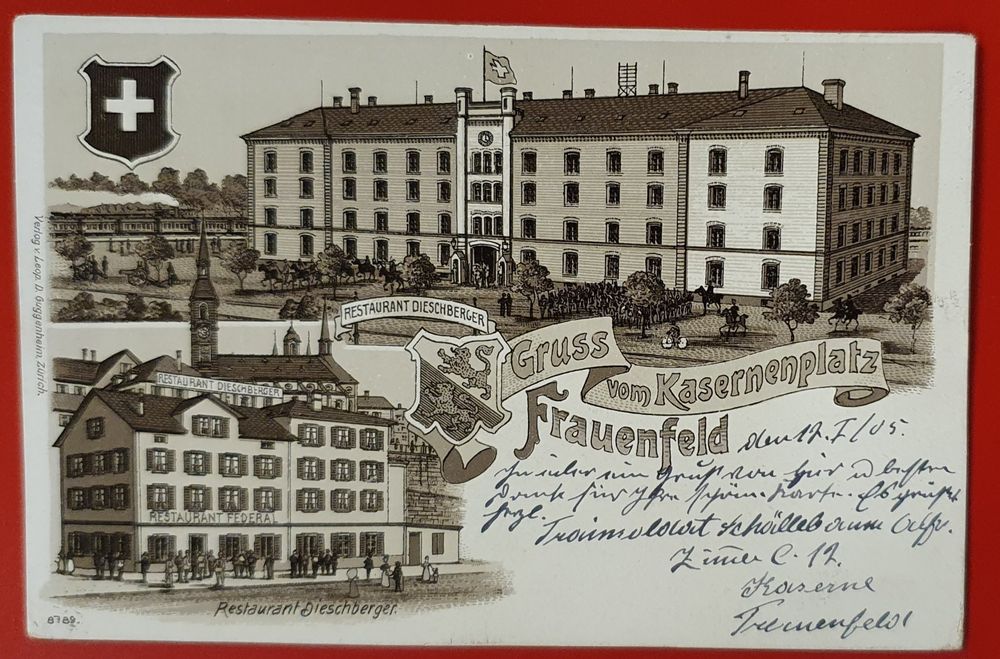 RESTAURANT DIESCHBERGER
Gruss
vom Kasernenplatz
Frauenfeld
den 17. I/05.
ein Gruss von hier u besten
Dank für Ihre schöne Karte. Es grüsst
herzl.
Trainsoldat Schällebaum Alfr.
Zimmer C. 17.
Kaserne
Frauenfeld
RESTAURANT DIESCHBERGER
RESTAURANT FEDERAL
Restaurant Dieschberger.
8789.
Verlag v. Leop. D. Guggenheim, Zürich.